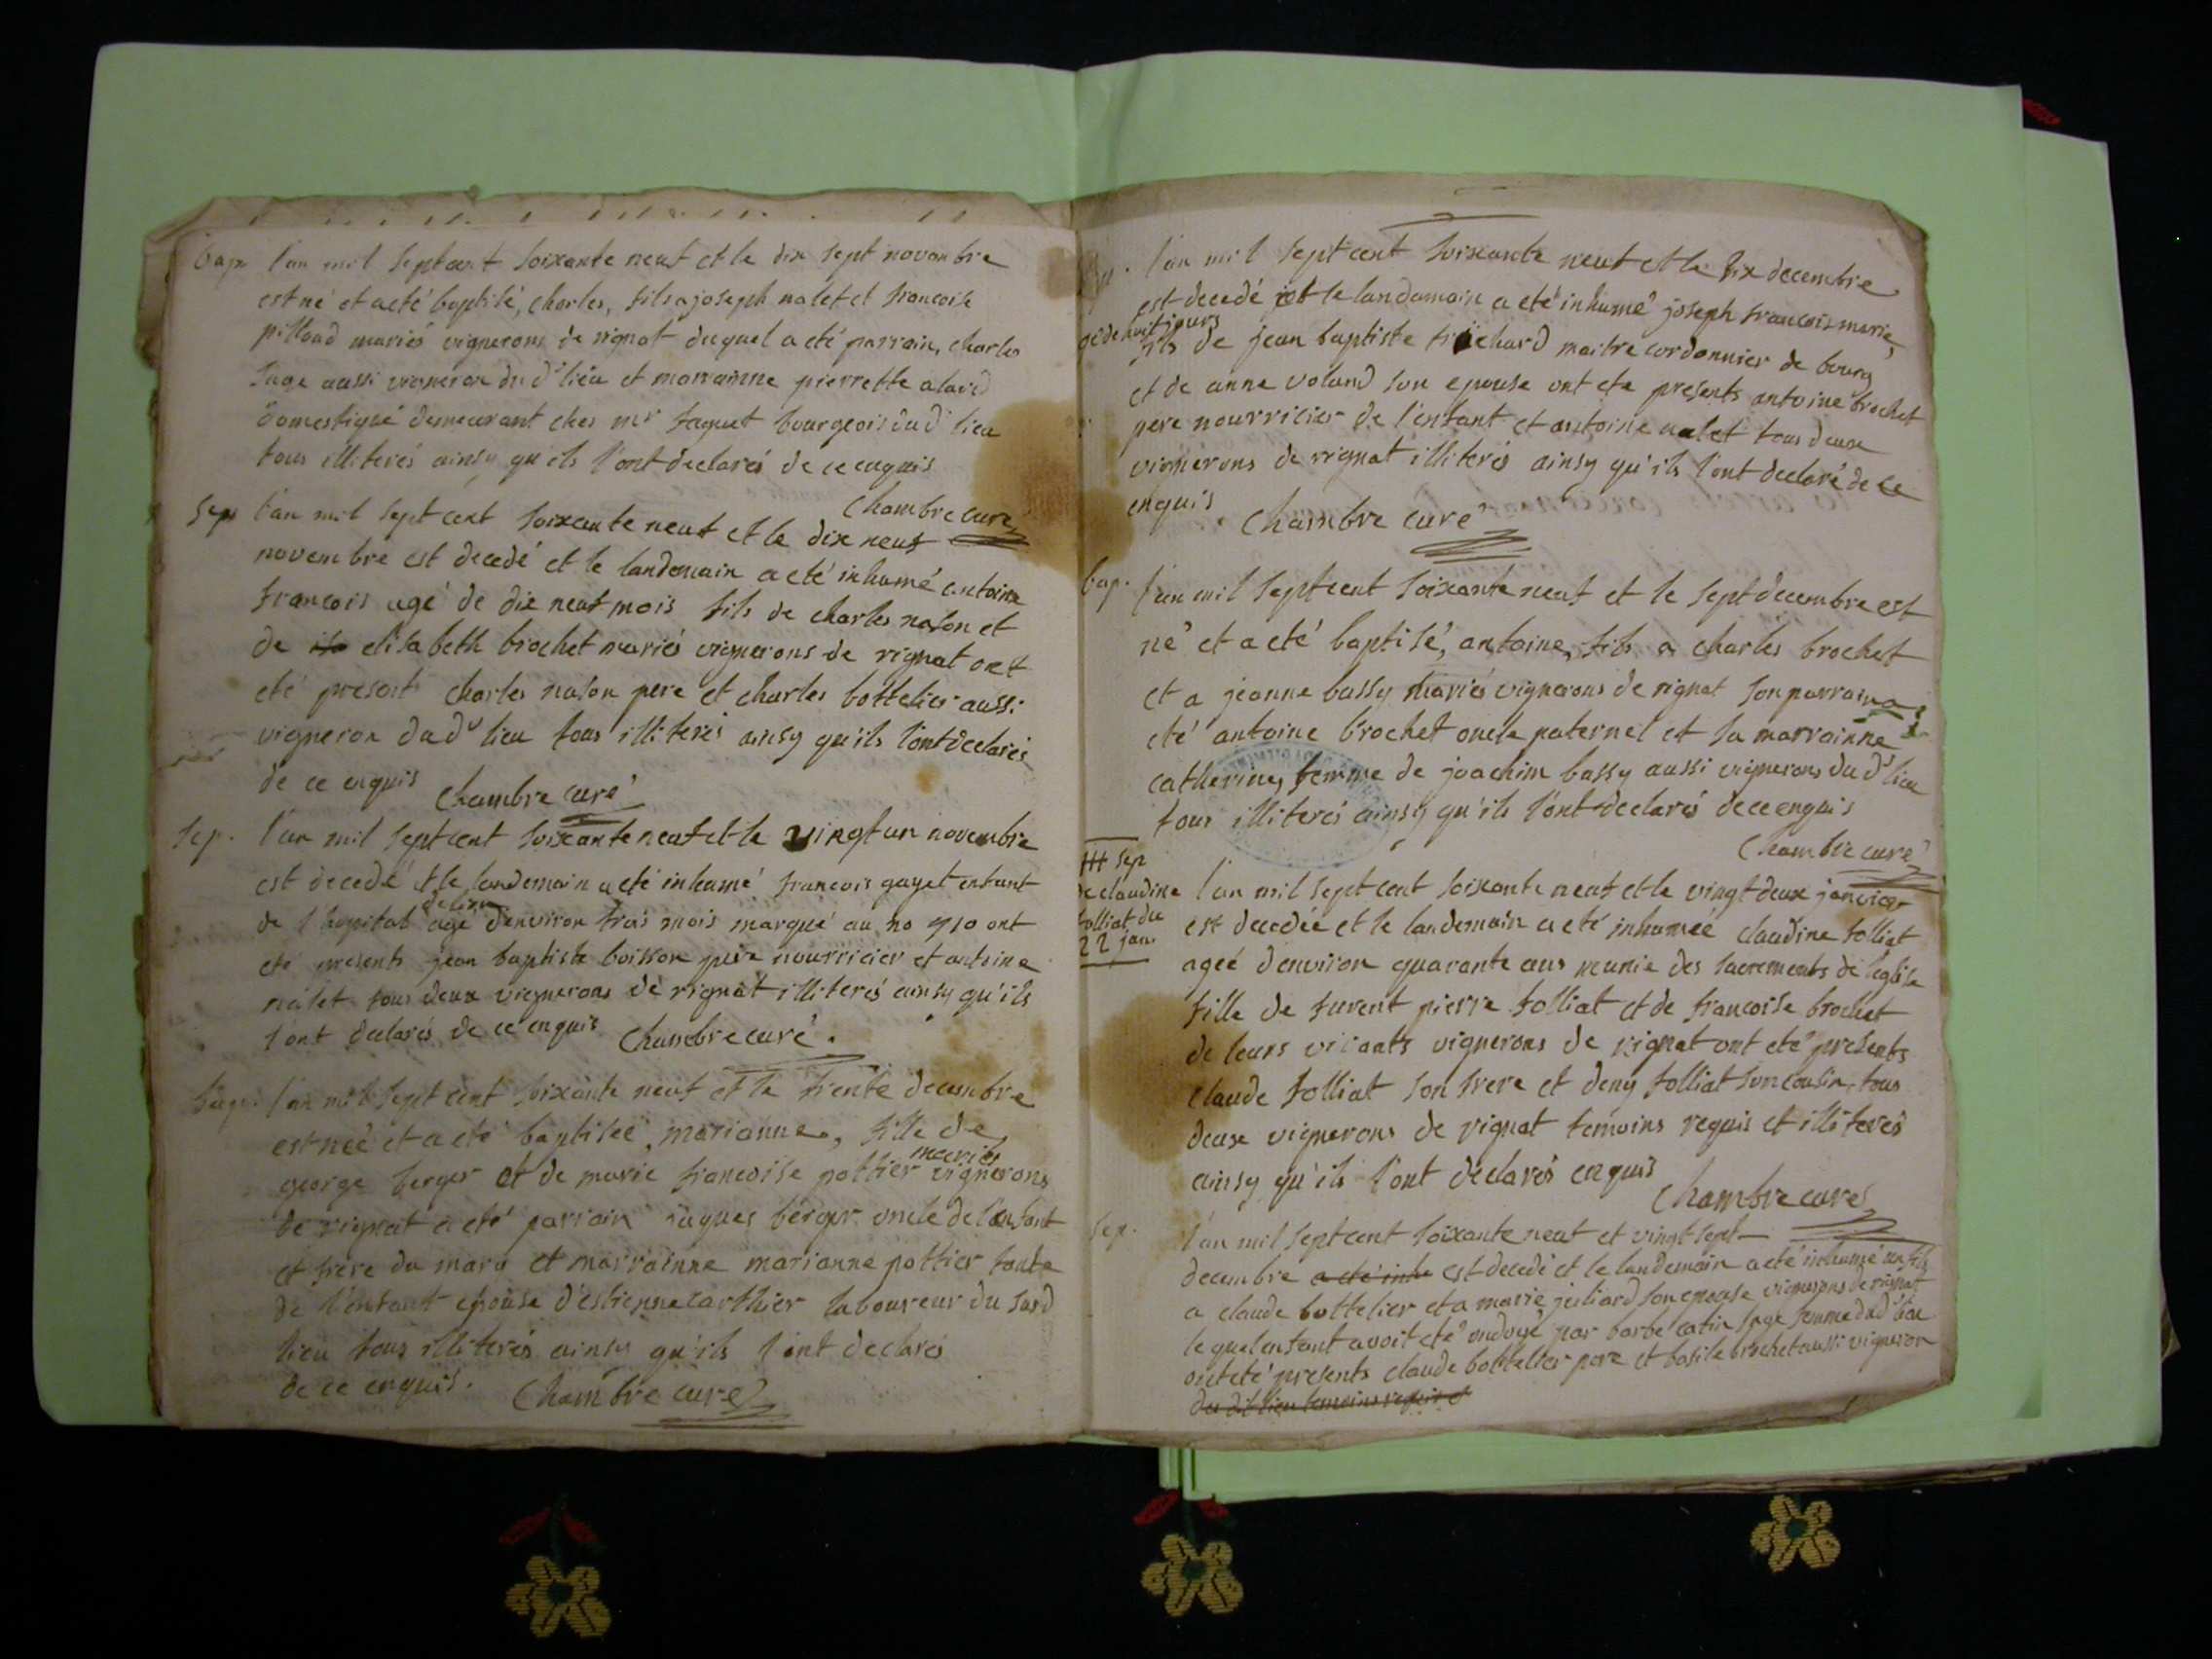 bap l'an mil sept cent soixante neuf et le dix sept novembre
est né et a eté baptisé, charles, fils a joseph nalet et francoise
pilloud mariés vignerons de rignat duquel a eté parrain, charles
juge aussi vigneron dud lieu et marrainne pierrette
domestique demeurant ches mr faguet bourgeois dud lieu
tous illiterés ainsy qu'ils l'ont declarés de ce enquis
Chambre curé
sep l'an mil sept cent soixante neuf et le dix neuf
novembre est decedé et le landemain a eté inhumé antoine
francois agé de dix neuf mois fils de charles nason et
de elisabeth brochet mariés vignerons de rignat ont
eté present charles nason pere et charles bottelier aussi
vigneron dud lieu tous illiterés ainsy qu'ils l'ont declarés
de ce enquis Chambre curé
sep. l'an mil sept cent soixante neuf et le vingt un novembre
est decedé et le landemain a eté inhumé francois gayet enfant
de l'hopital de lion agé d'environ trois mois marqué au no 910 ont
eté presents jean baptiste boisson pere nourricier et antoine
nalet tous deux vignerons de rignat illiterés ainsy qu'ils
l'ont declarés de ce enquis Chambre curé.
bap. l'an mil sept cent soixante neuf et le trente decembre
est née et a eté baptisée, marianne, fille de
george berger et de marie francoise pottier mariés vignerons
de rignat a eté parrain jaques berger oncle de l'enfant
et frere du mary et marrainne marianne pottier tante
de l'enfant epouse d'estienne carthier laboureur du susd
lieu tous illiterés ainsy qu'ils l'ont declarés
de ce enquis. Chambre curé
l'an mil sept cent soixante neuf et le six decembre
est decedé et le landemain a eté inhumé joseph francois marie,
agé de huit jours
fils de jean baptiste trichard maitre cordonnier de bourg
et de anne voland son epouse ont ete presents antoine brochet
pere nourricier de l'enfant et antoine nalet tous deux
vignerons de rignat illiterés ainsy qu'ils l'ont declaré de ce
enquis Chambre curé
bap. l'an mil sept cent soixante neuf et le sept decembre est
né et a eté baptisé, antoine, fils a charles brochet
et a jeanne bassy mariés vignerons de rignat son parrain a
eté antoine brochet oncle paternel et sa marrainne
catherine, femme de joachim bassy aussi vignerons dud lieu
tous illiterés ainsy qu'ils l'ont declarés de ce enquis
Chambre curé
sep
de claudine
folliat du
22 jan.
l'an mil sept cent soixante neuf et le vingt deux janvier
est decedée et le landemain a eté inhumée claudine folliat
ageé d'environ quarante ans munie des sacrements de l'eglise
fille de furent pierre folliat et de francoise brochet
de leurs vivants vignerons de rignat ont eté presents
claude folliat son frere et deny folliat son cousin, tous
deux vignerons de rignat temoins requis et illiterés
ainsy qu'ils l'ont declarés enquis
Chambre curé
sep. l'an mil sept cent soixante neuf et vingt sept
decembre a eté inhu est decedé et le landemain a eté inhumé un fils
a claude bottelier et a marie juliard son epouse vignerons de rignat
lequel enfant avoit eté ondoyé par barbe catin sage femme dud lieu
ont eté presents claude bottelier pere et basile brochet aussi vigneron
du dit lieu temoins requis et